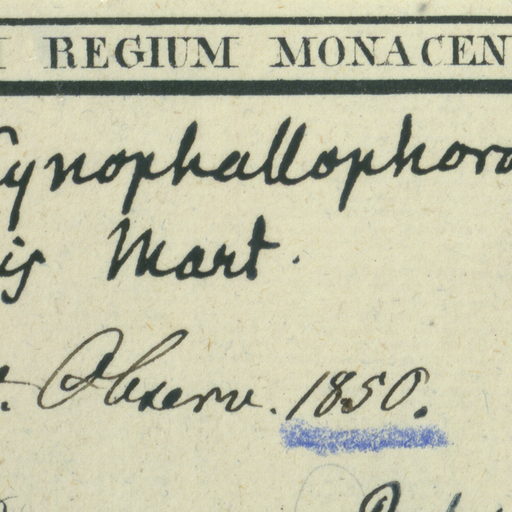 REGIUM MONACEN
Cynophallophora
is Mart.
Observ. 1850.